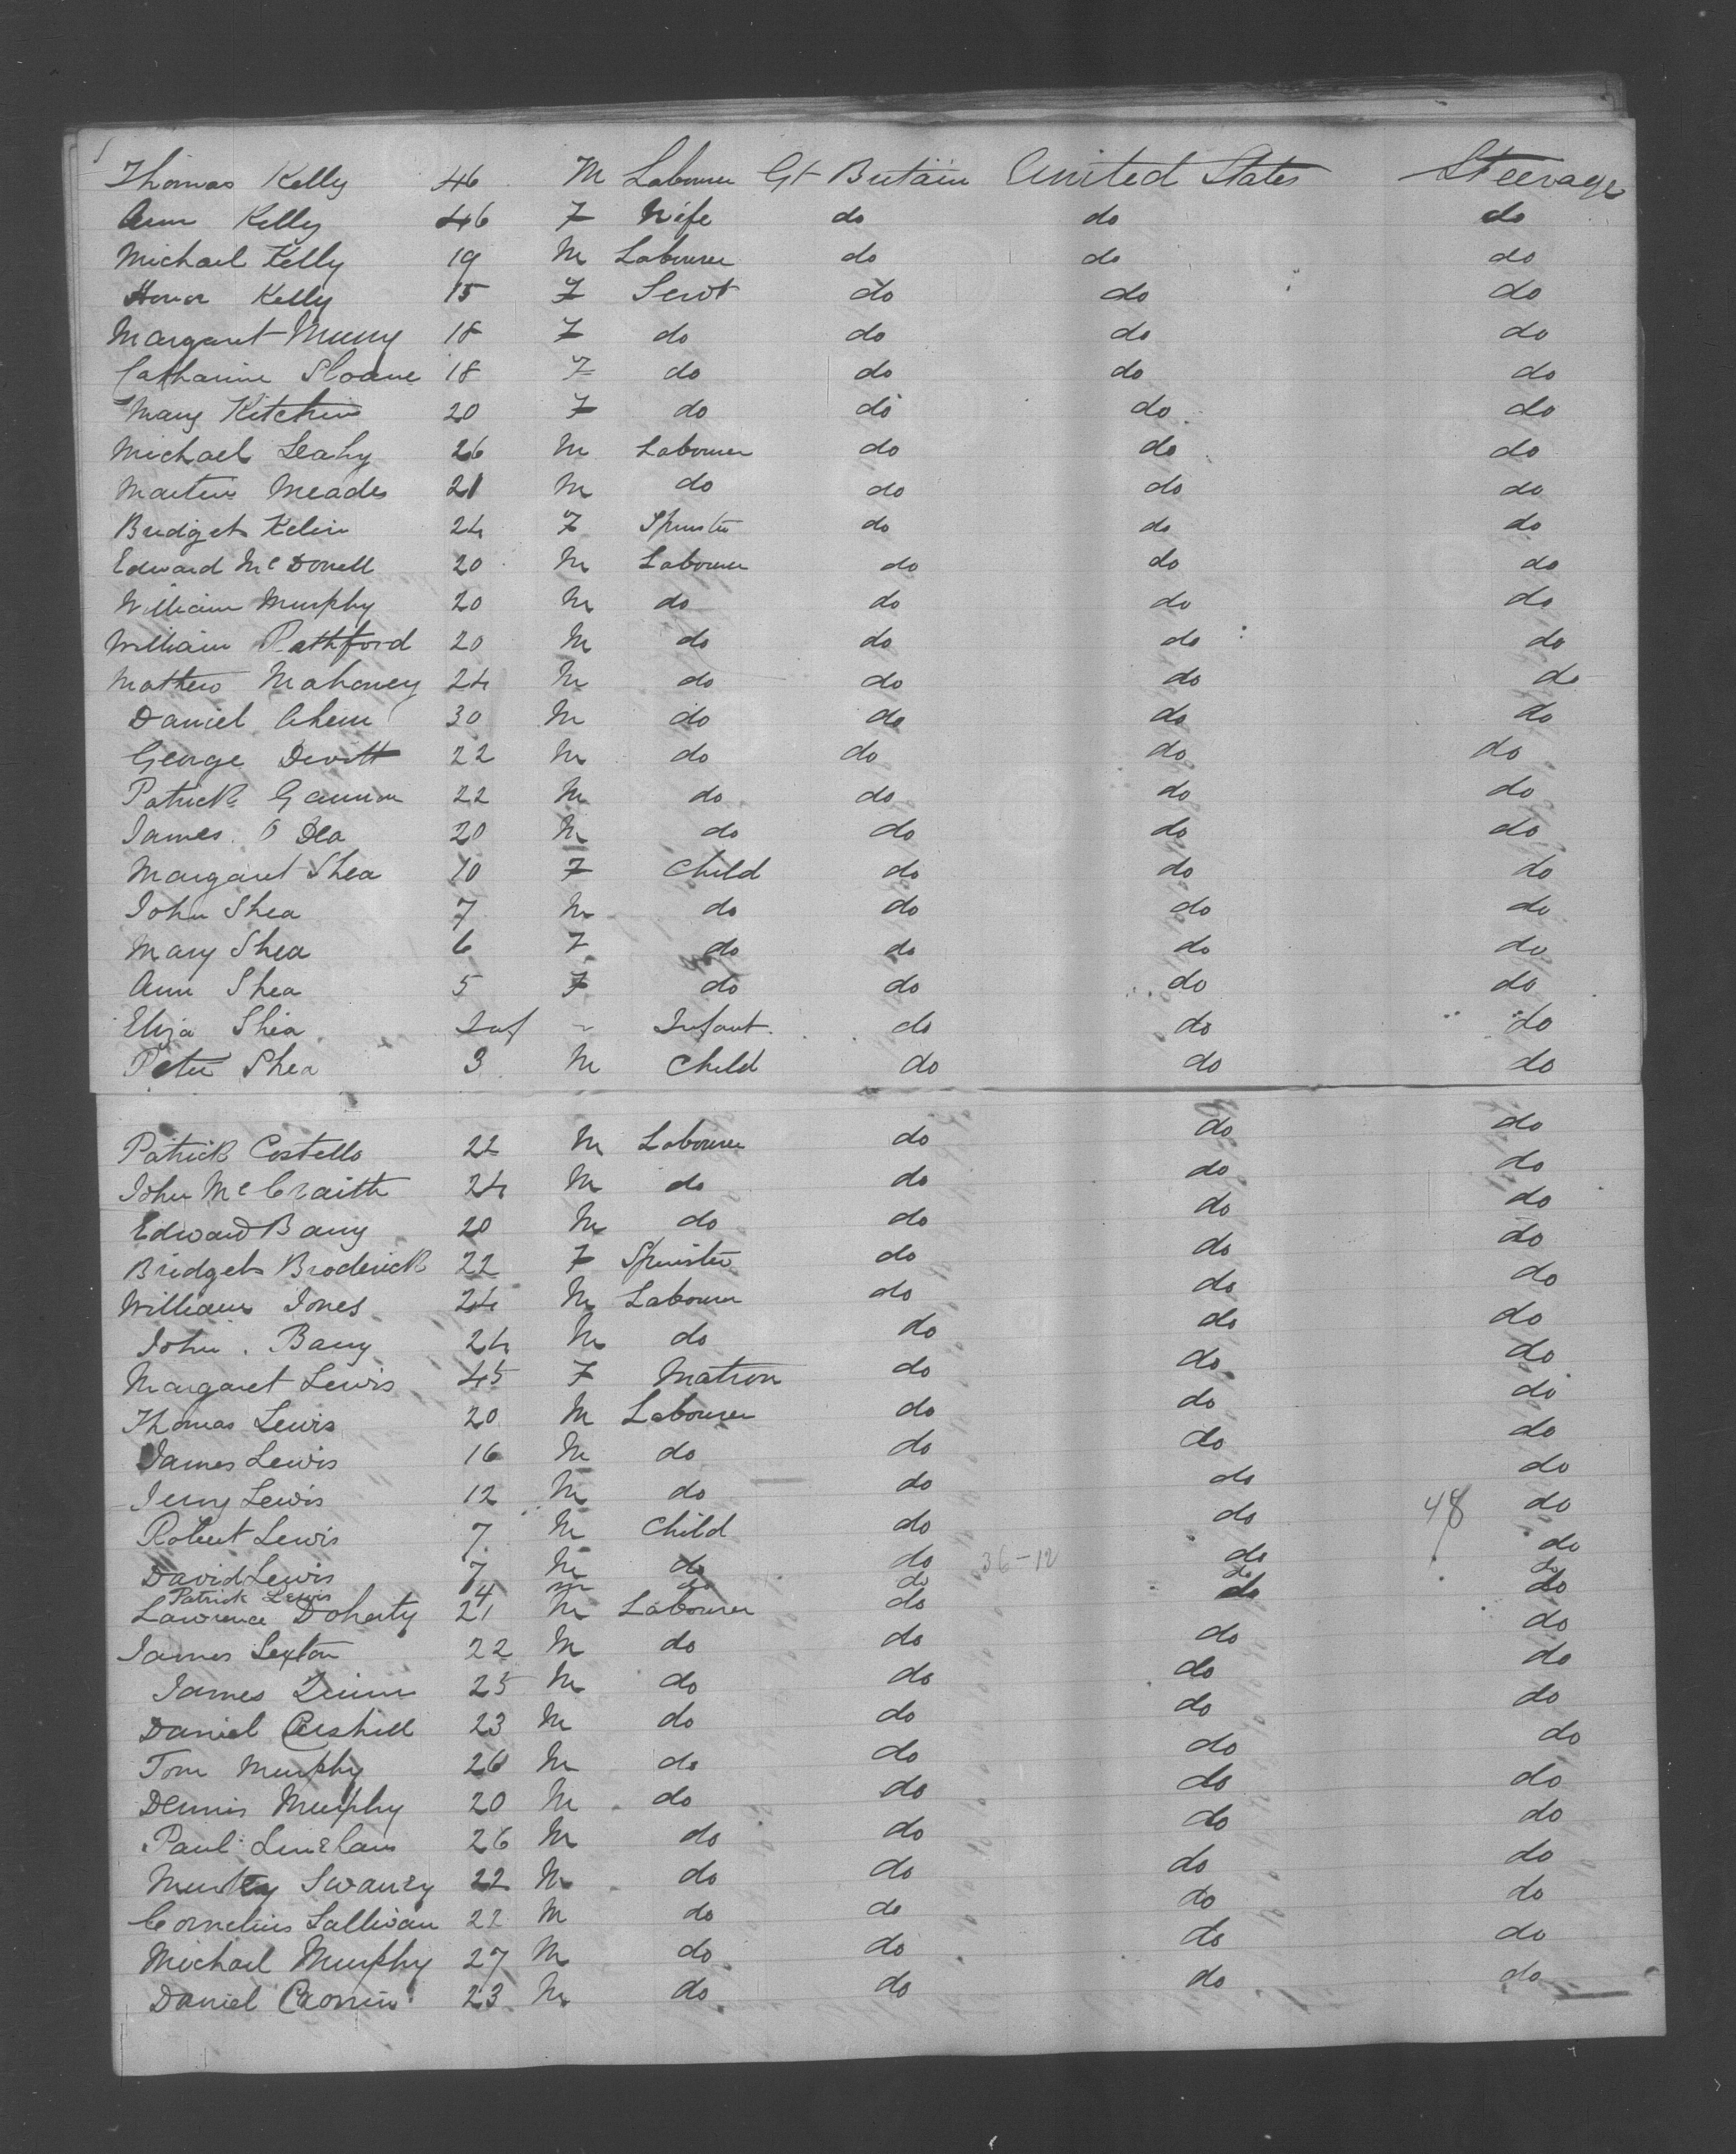 Thomas Kelly 46 M Labourer Gt Britain United States Steerage
Ann Kelly 46 F Wife do do do
Michael Kelly 19 M Labourer do do do
Honor Kelly 15 F Servt do do do
Margaret 18 F do do do do
Catharine Sloane 18 F do do do do
Mary Kitchin 20 F do do do do
Michael Leahy 26 M Labourer do do do
Martin Meades 21 M do do do do
Bridget 24 F Spinster do do do
Edward McDonell 20 M Labourer do do do
William Murphy 20 M do do do do
William Rathford 20 M do do do do
Mathew Mahoney 24 M do do do do
Daniel Ahern 30 M do do do do
George Devitt 22 M do do do do
Patrick Gannon 22 M do do do do
James O Dea 20 M do do do do
Margaret Shea 10 F Child do do do
John Shea 7 M do do do do
Mary Shea 6 F do do do do
Ann Shea 5 F do do do do
Eliza Shea Inf " Infant do do do
Peter Shea 3 M Child do do do
Patrick Costello 22 M Labourer do do do
John McCraith 24 M do do do do
Edward Barry 20 M do do do do
Bridget Broderick 22 F Spinster do do do
William Jones 24 M Labourer do do do
John Barry 24 M do do do do
Margaret Lewis 45 F Matron do do do
Thomas Lewis 20 M Labourer do do do
James Lewis 16 M do do do do
Jerry Lewis 12 M do do do do
Robert Lewis 7 M Child do do 48 do
David Lewis 7 M do do 36-12 do do
Patrick Lewis 4 m do do do do
Lawrence Doherty 21 M Labourer do do do
James Sexton 22 M do do do do
James Quinn 25 M do do do do
Daniel 23 M do do do do
Tom Murphy 26 M do do do do
Dennis Murphy 20 M do do do do
Paul Linehan 26 M do do do do
Murty Swaney 22 M do do do do
Cornelius Sullivan 22 M do do do do
Michael Murphy 27 M do do do do
Daniel Cronin 23 M do do do do